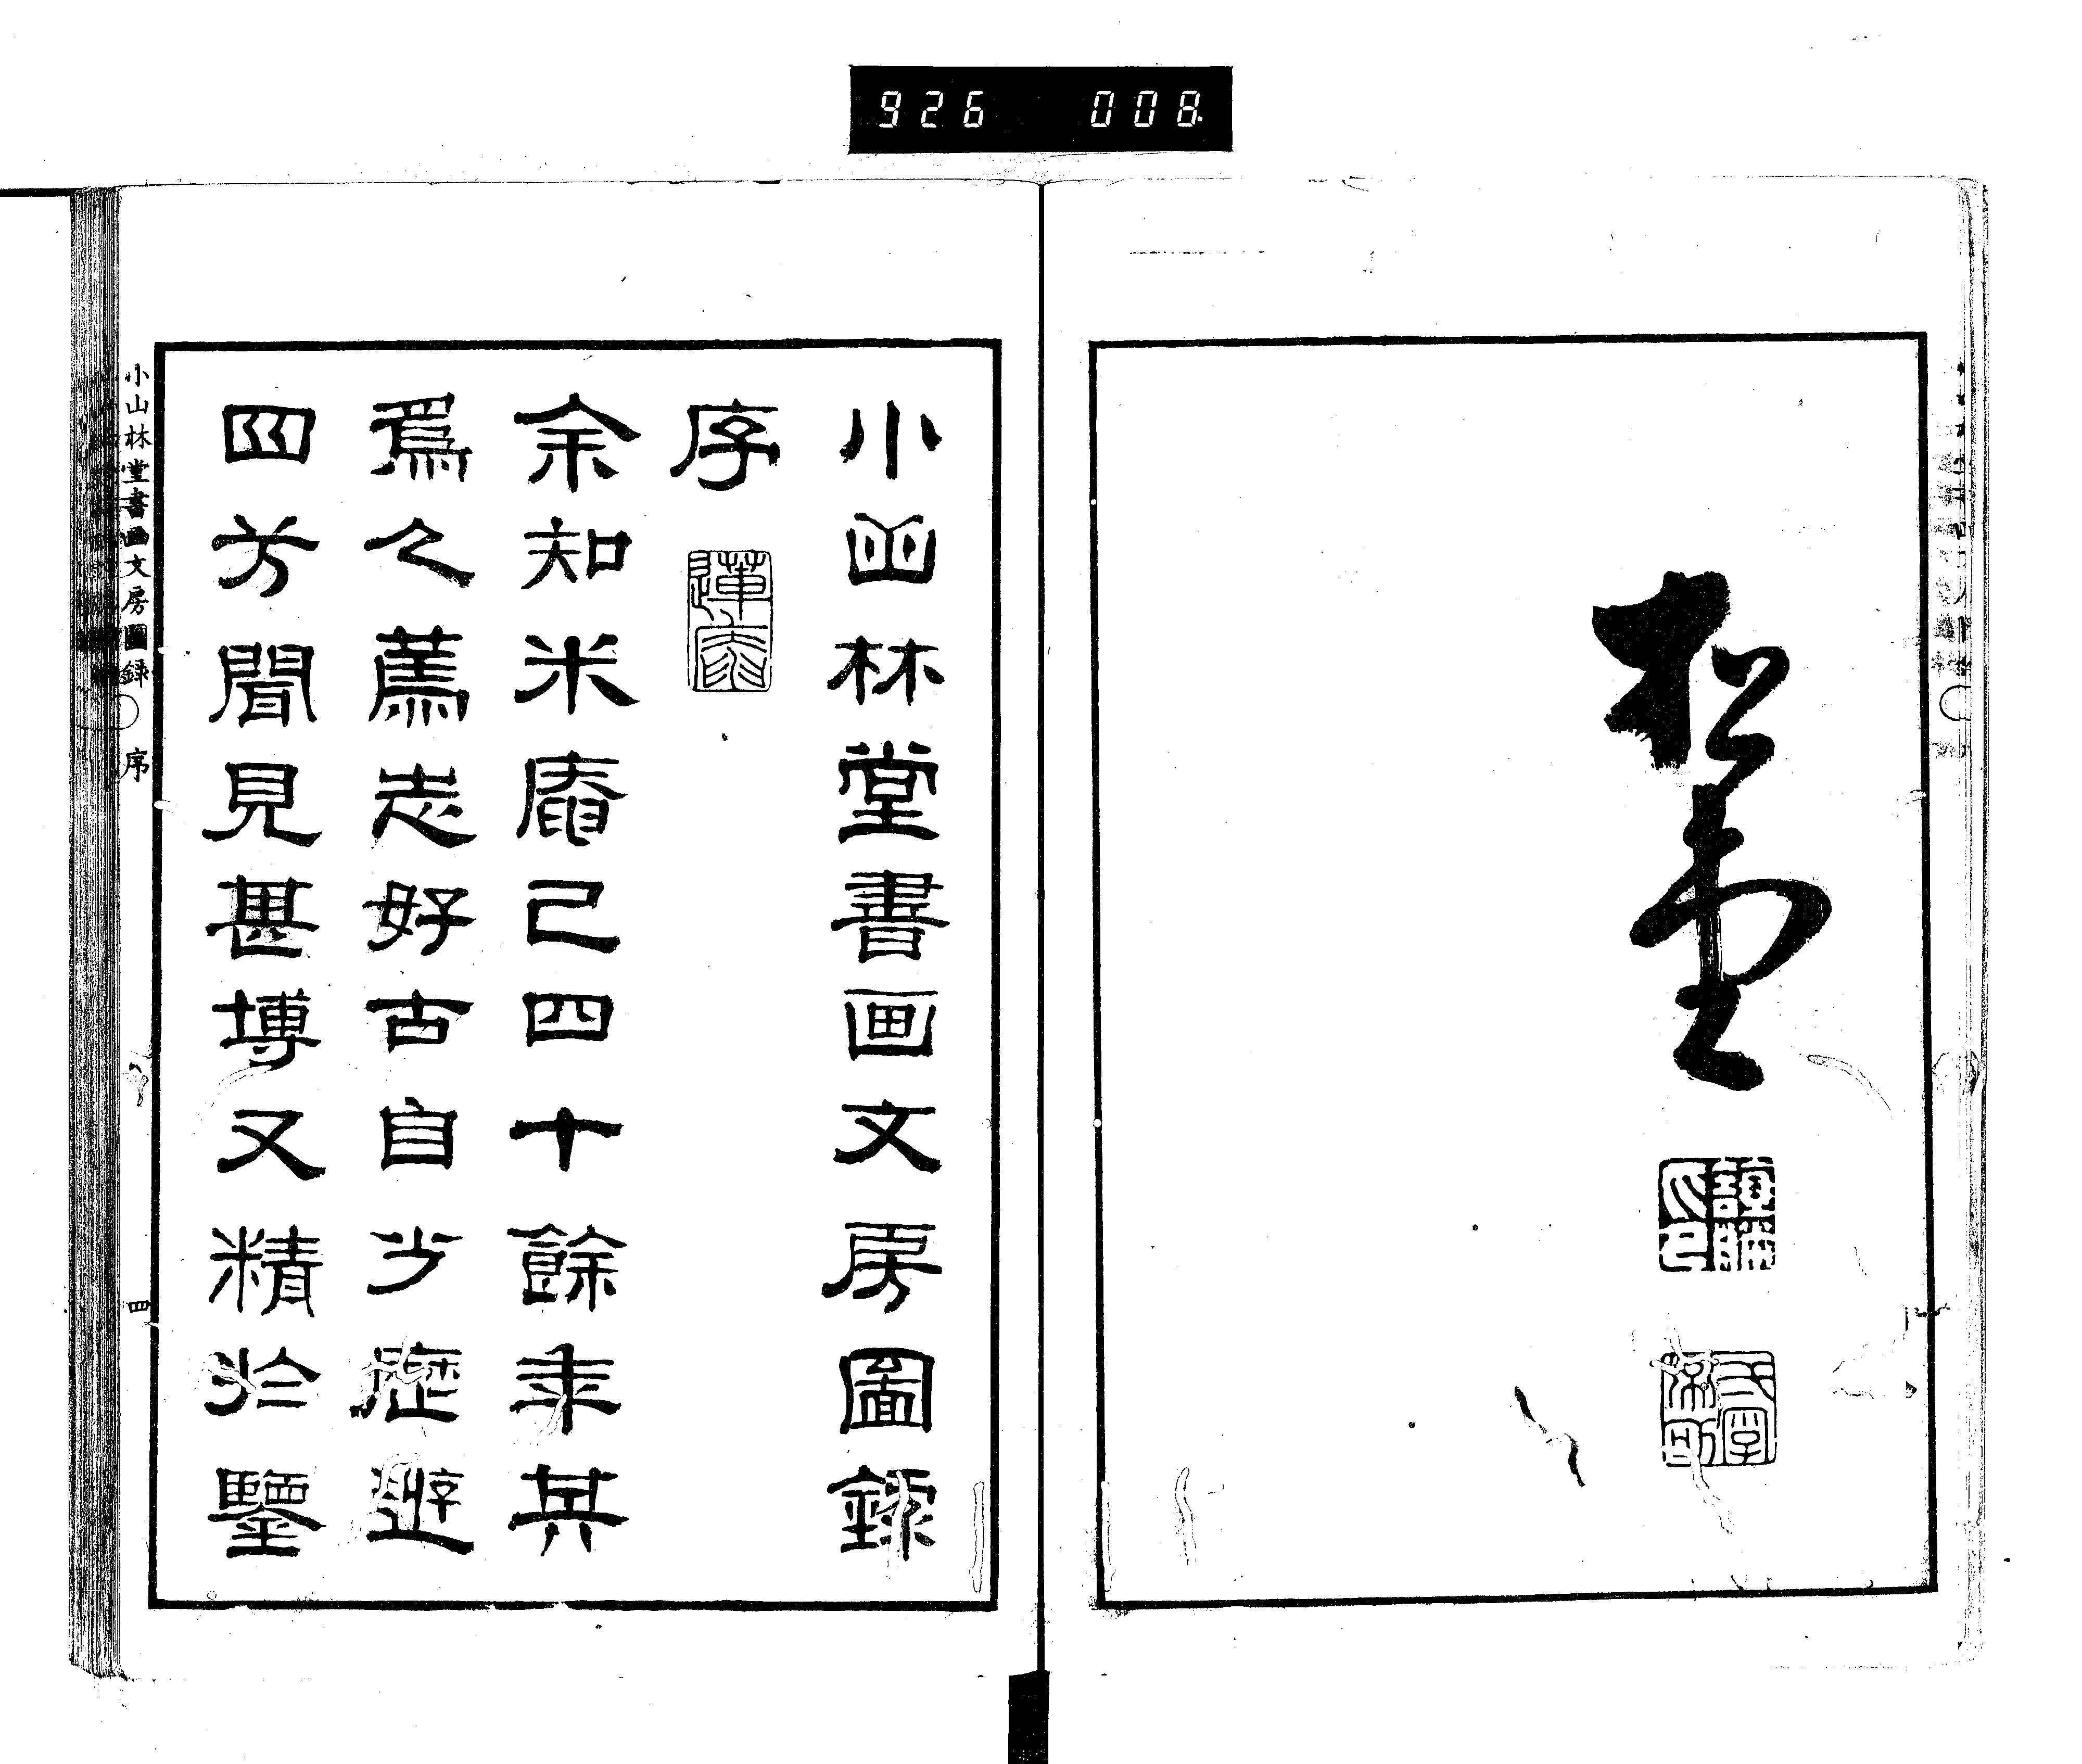 926 008
松堂
小山林堂書画文房圖錄
序
余知米庵已四十餘年其
爲人篤志好古自少歷遊
四方聞見甚博又精於鑒
小山林堂書画文房圖録 序 四